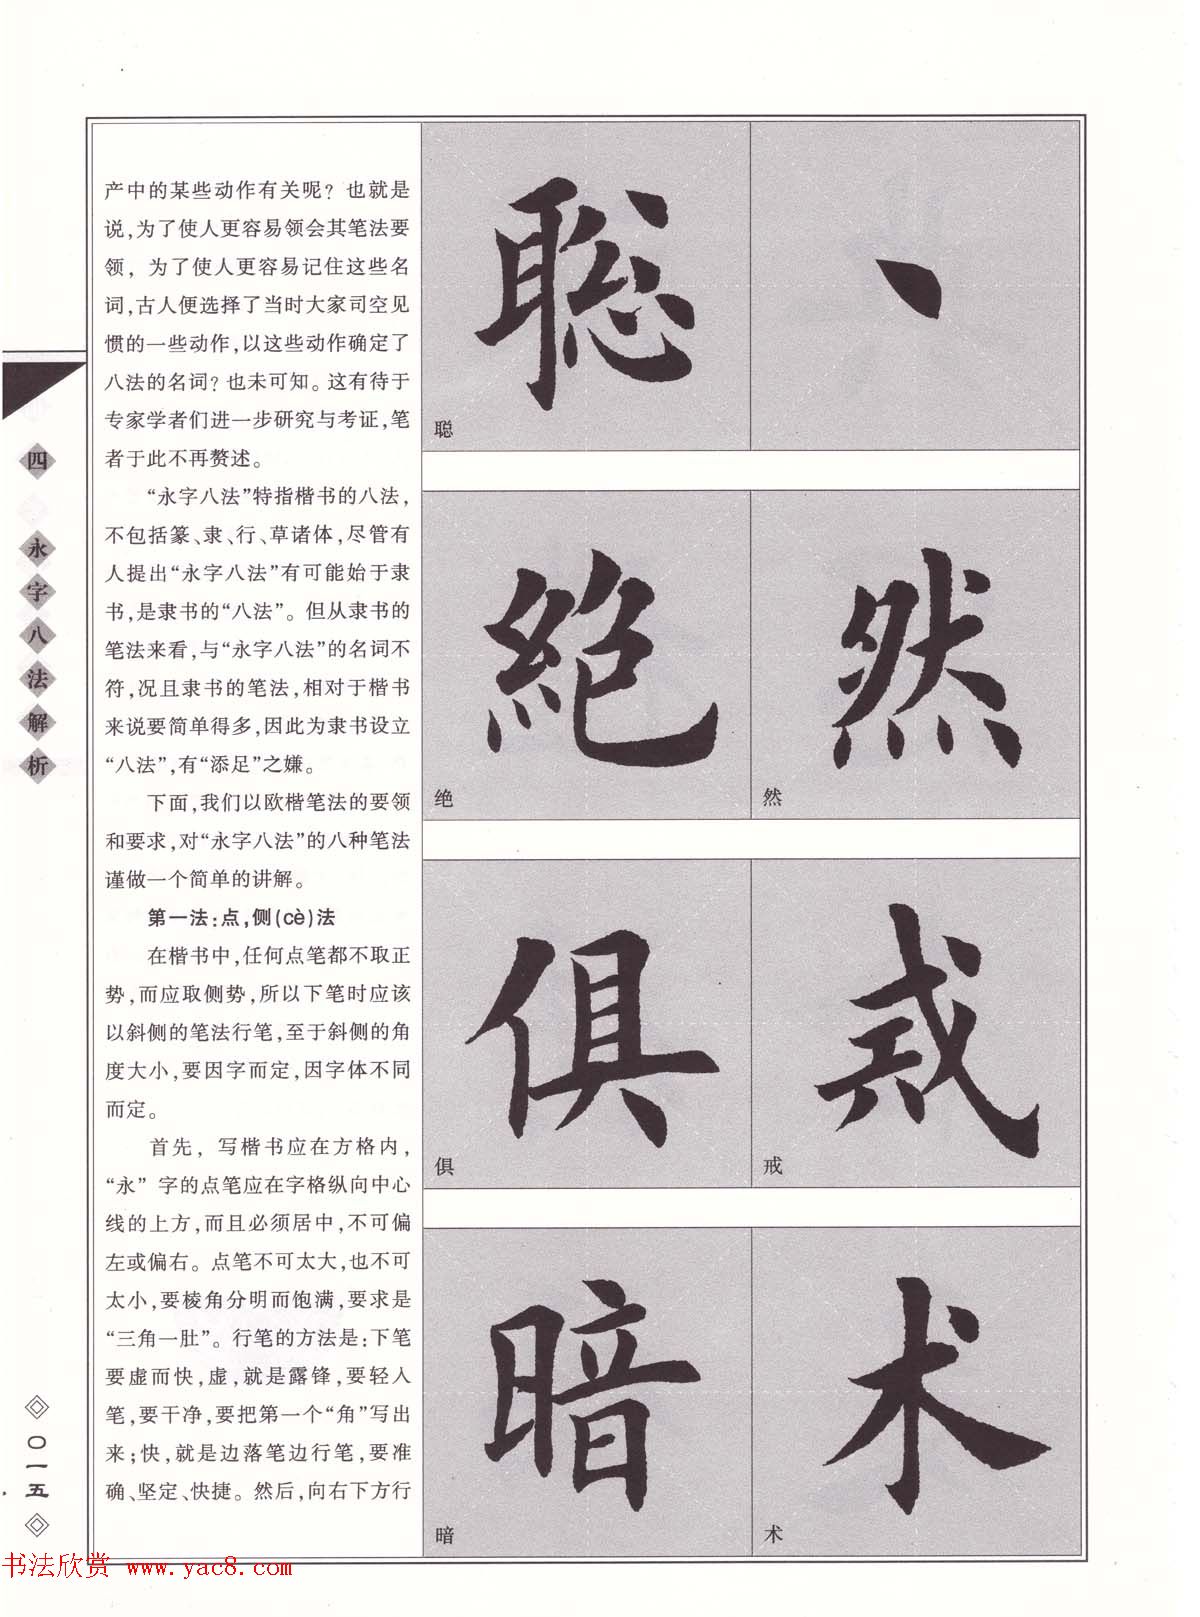 产中的某些动作有关呢？也就是
说，为了使人更容易领会其笔法要
领，为了使人更容易记住这些名
词，古人便选择了当时大家司空见
惯的一些动作，以这些动作确定了
八法的名词？也未可知。这有待于
专家学者们进一步研究与考证，笔
者于此不再赘述。
“永字八法”特指楷书的八法，
不包括篆、隶、行、草诸体，尽管有
人提出“永字八法”有可能始于隶
书，是隶书的“八法”。但从隶书的
笔法来看，与“永字八法”的名词不
符，况且隶书的笔法，相对于楷书
来说要简单得多，因此为隶书设立
“八法”，有“添足”之嫌。
下面，我们以欧楷笔法的要领
和要求，对“永字八法”的八种笔法
谨做一个简单的讲解。
第一法：点，侧(cè)法
在楷书中，任何点笔都不取正
势，而应取侧势，所以下笔时应该
以斜侧的笔法行笔，至于斜侧的角
度大小，要因字而定，因字体不同
而定。
首先，写楷书应在方格内，
“永”字的点笔应在字格纵向中心
线的上方，而且必须居中，不可偏
左或偏右。点笔不可太大，也不可
太小，要棱角分明而饱满，要求是
“三角一肚”。行笔的方法是：下笔
要虚而快，虚，就是露锋，要轻入
笔，要干净，要把第一个“角”写出
来；快，就是边落笔边行笔，要准
确、坚定、快捷。然后，向右下方行
聪
聪
丶
絶
绝
然
然
俱
俱
戒
戒
暗
暗
术
术
四 永字八法解析
〇一五
书法欣赏 www.yac8.com